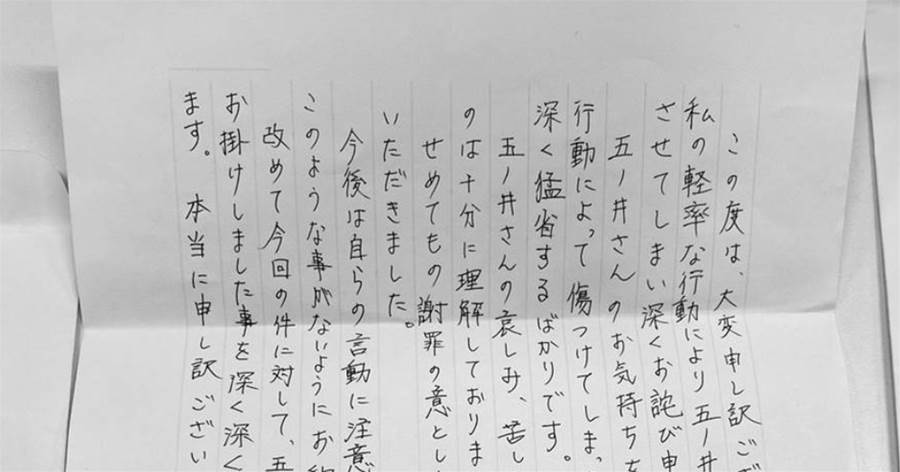 この度は、大変申し訳ござ
私の軽率な行動により五ノ井
させてしまい深くお詫び申
五ノ井さんのお気持ちを
行動によって傷つけてしまっ
深く猛省するばかりです。
五ノ井さんの哀しみ、苦し
のは十分に理解しておりま
せめてもの謝罪の意とし
いただきました。
今後は自らの言動に注意
このような事がないようにお
改めて今回の件に対して、五
お掛けしました事を深く深く
ます。本当に申し訳ござい